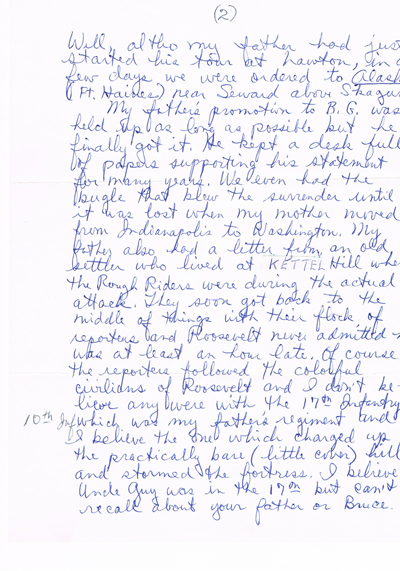 (2)
Well, altho my father had just
started his tour at Lawton, in a
few days we were ordered to Alask
(Ft. Haines) near Seward above Skagua
My father's promotion to B.G. was
held up as long as possible but he
finally got it. He kept a desk full
of papers supporting his statement
for many years. We even had the
bugle that blew the surrender until
it was lost when my mother moved
from Indianapolis to Washington. My
father also had a letter from an old
settler who lived at KETTEL Hill when
the Rough Riders were during the actual
attack. They soon got back to the
middle of things with their flock of
reporters and Roosevelt never admitted
was at least an hour late. Of course
the reporters followed the colorful
civilians of Roosevelt and I don't be-
lieve any were with the 17th Infantry
10th Inf which was my father's regiment and
I believe the one which charged up
the practically bare (little cover) hill
and stormed the fortress. I believe
Uncle Guy was in the 17th but can't
recall about your father or Bruce.